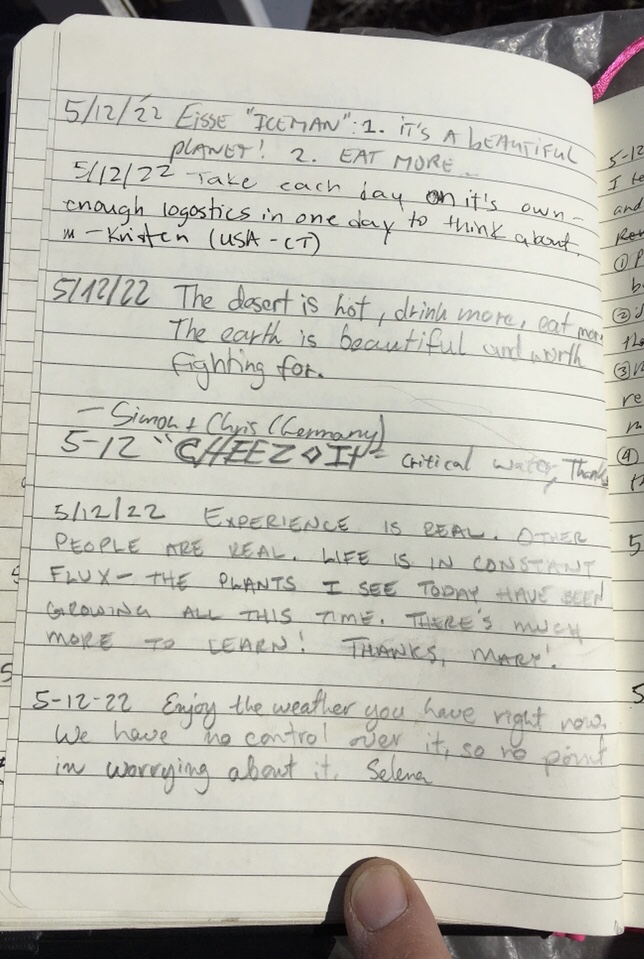 5/12/22 Eisse "ICEMAN": 1. iT'S A bEAUTiFUL
PLANET! 2. EAT MORE.
5/12/22 Take each day on it's own -
enough logostics in one day to think about.
- Kristen (USA - CT)
5/12/22 The desert is hot, drink more, eat more.
The earth is beautiful and worth
fighting for.
- Simon + Chris (Germany)
5-12 "CHEEZ◇IT" = Critical water, Thanks
5/12/22 EXPERIENCE IS REAL. OTHER
PEOPLE ARE REAL. LIFE IS IN CONSTANT
FLUX - THE PLANTS I SEE TODAY HAVE BEEN
GROWING ALL THIS TIME. THERE'S MUCH
MORE TO LEARN! THANKS, MARY!
5-12-22 Enjoy the weather you have right now.
We have no control over it, so no point
in worrying about it. Selena
5-12
I
and
①
②
③
re
④
5
5